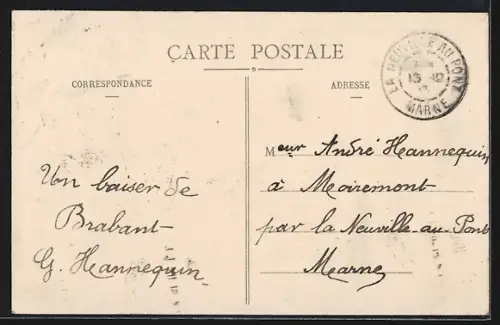 CARTE POSTALE
CORRESPONDANCE
ADRESSE
LA NEUVILLE AU PONT
MARNE
Un baiser de
Brabant
G. Hannequin
Meur André Hannequin
à Moiremont
par la Neuville-au-Pont
Marne